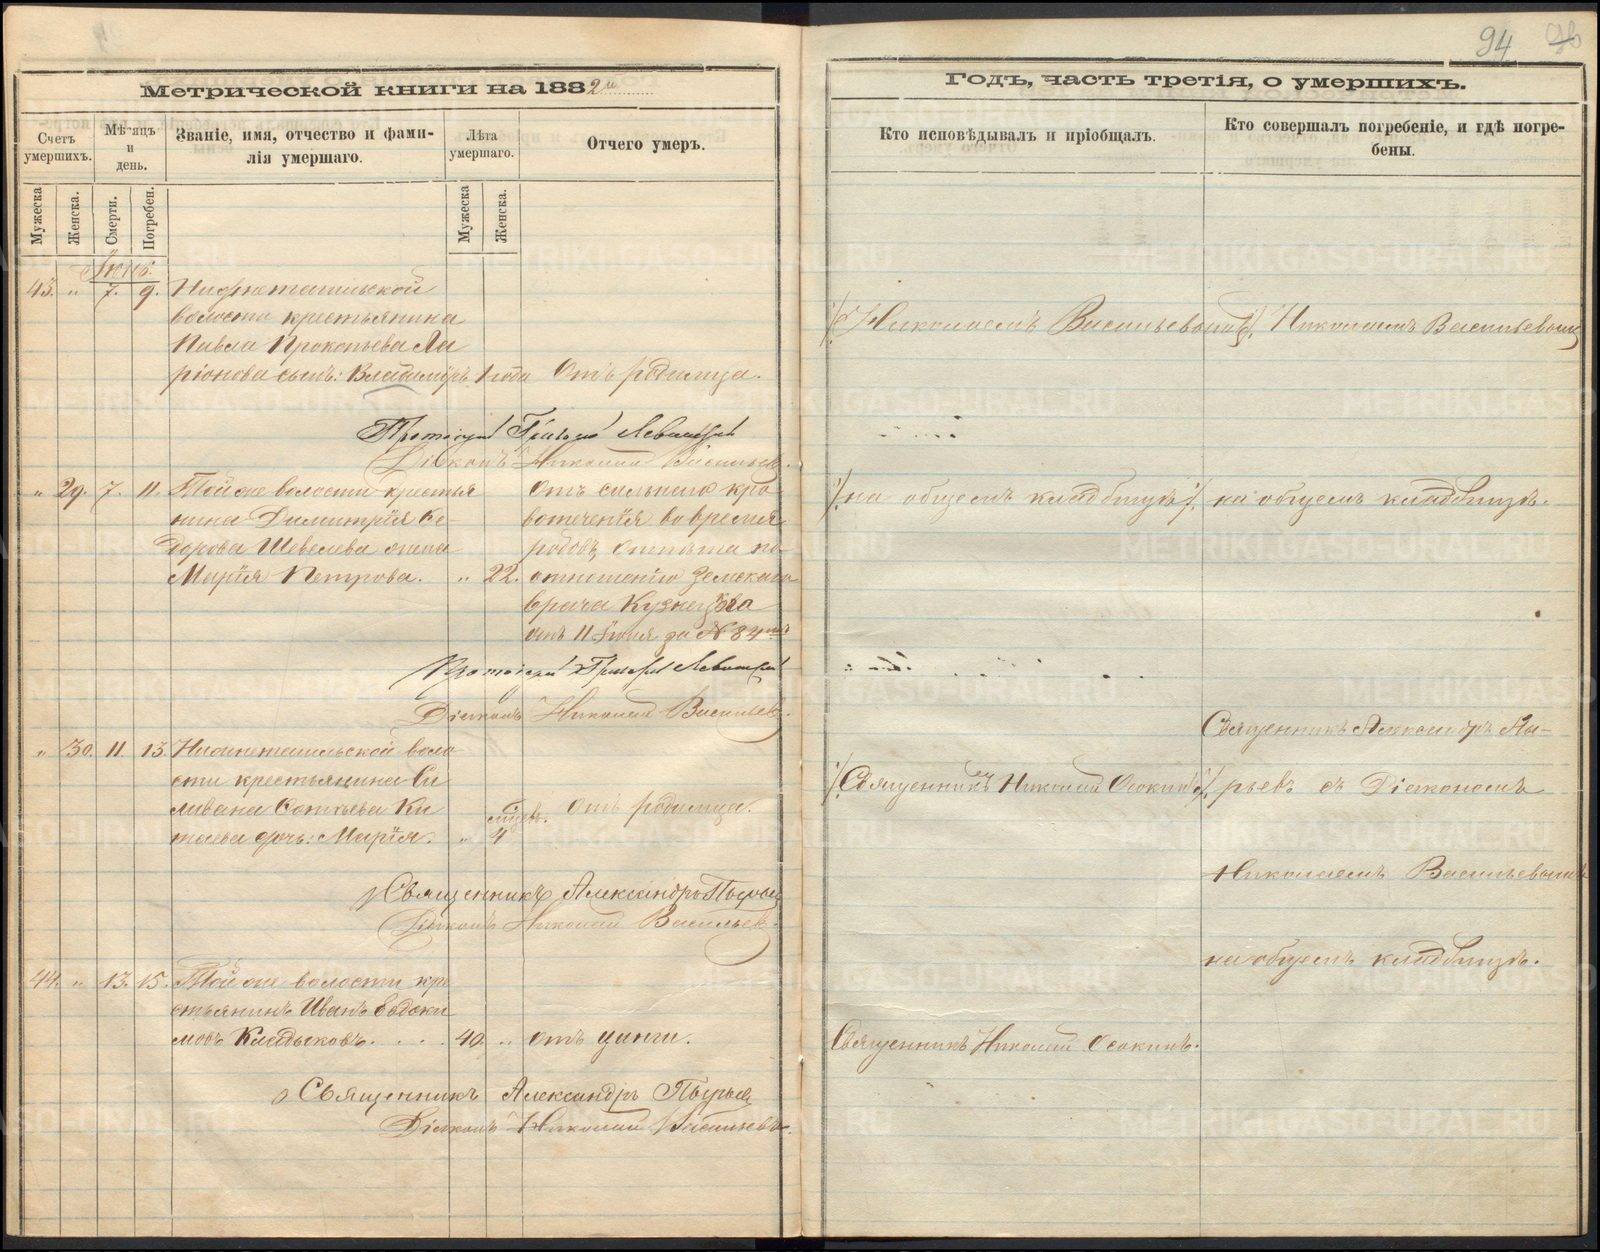 94
Метрической книги на 1882й
Годъ, часть третія, о умершихъ.
Счетъ умершихъ.
Мѣсяцъ и день.
Званіе, имя, отчество и фами-
лія умершаго.
Лѣта умершаго.
Отчего умеръ.
Кто исповѣдывалъ и пріобщалъ.
Кто совершалъ погребеніе, и гдѣ погре-
бены.
Мужеска
Женска.
Смерти.
Погребен.
Мужеска
Женска.
43. " 7. 9.
волости крестьянина
Павла Прокопьева Ла
ріонова сынъ: Владиміръ. 1 года Отъ родимца.
Николаемъ Васильевымъ
Николаемъ Васильевымъ
Протоіерей Григорій Левитскій
Діаконъ Николай Васильевъ.
" 29. 7. 11. Той же волости крестья
нина Димитрія Ѳе-
дорова Шевелева жена
Марія Петрова. " 22.
Отъ сильнаго кро
вотеченія во время
родовъ, отпѣта по
отношенію Земскаго
врача Кузнецова
отъ 11 Іюня за № 84
на общемъ кладбищѣ
на общемъ кладбищѣ.
Протоіерей Григорій Левитскій
Діаконъ Николай Васильевъ.
" 30. 11. 13. Нижнетагильской воло
сти крестьянина Си
ливана Ки
таева дочь: Марія. " 4 мѣсяц. Отъ родимца.
Священникъ Николай Осокинъ
Священникъ Александръ Пы-
рьевъ съ Діакономъ
Николаемъ Васильевымъ
на общемъ кладбищѣ.
Священникъ Александръ Пырьевъ
Діаконъ Николай Васильевъ.
44. " 13. 15. Той же волости кре
стьянинъ Иванъ Евдоки
мовъ Кладыковъ. . . . 40. " отъ цынги.
Священникъ Николай Осокинъ.
Священникъ Александръ Пырьев
Діаконъ Николай Васильевъ.
METRIKI.GASO-URAL.RU